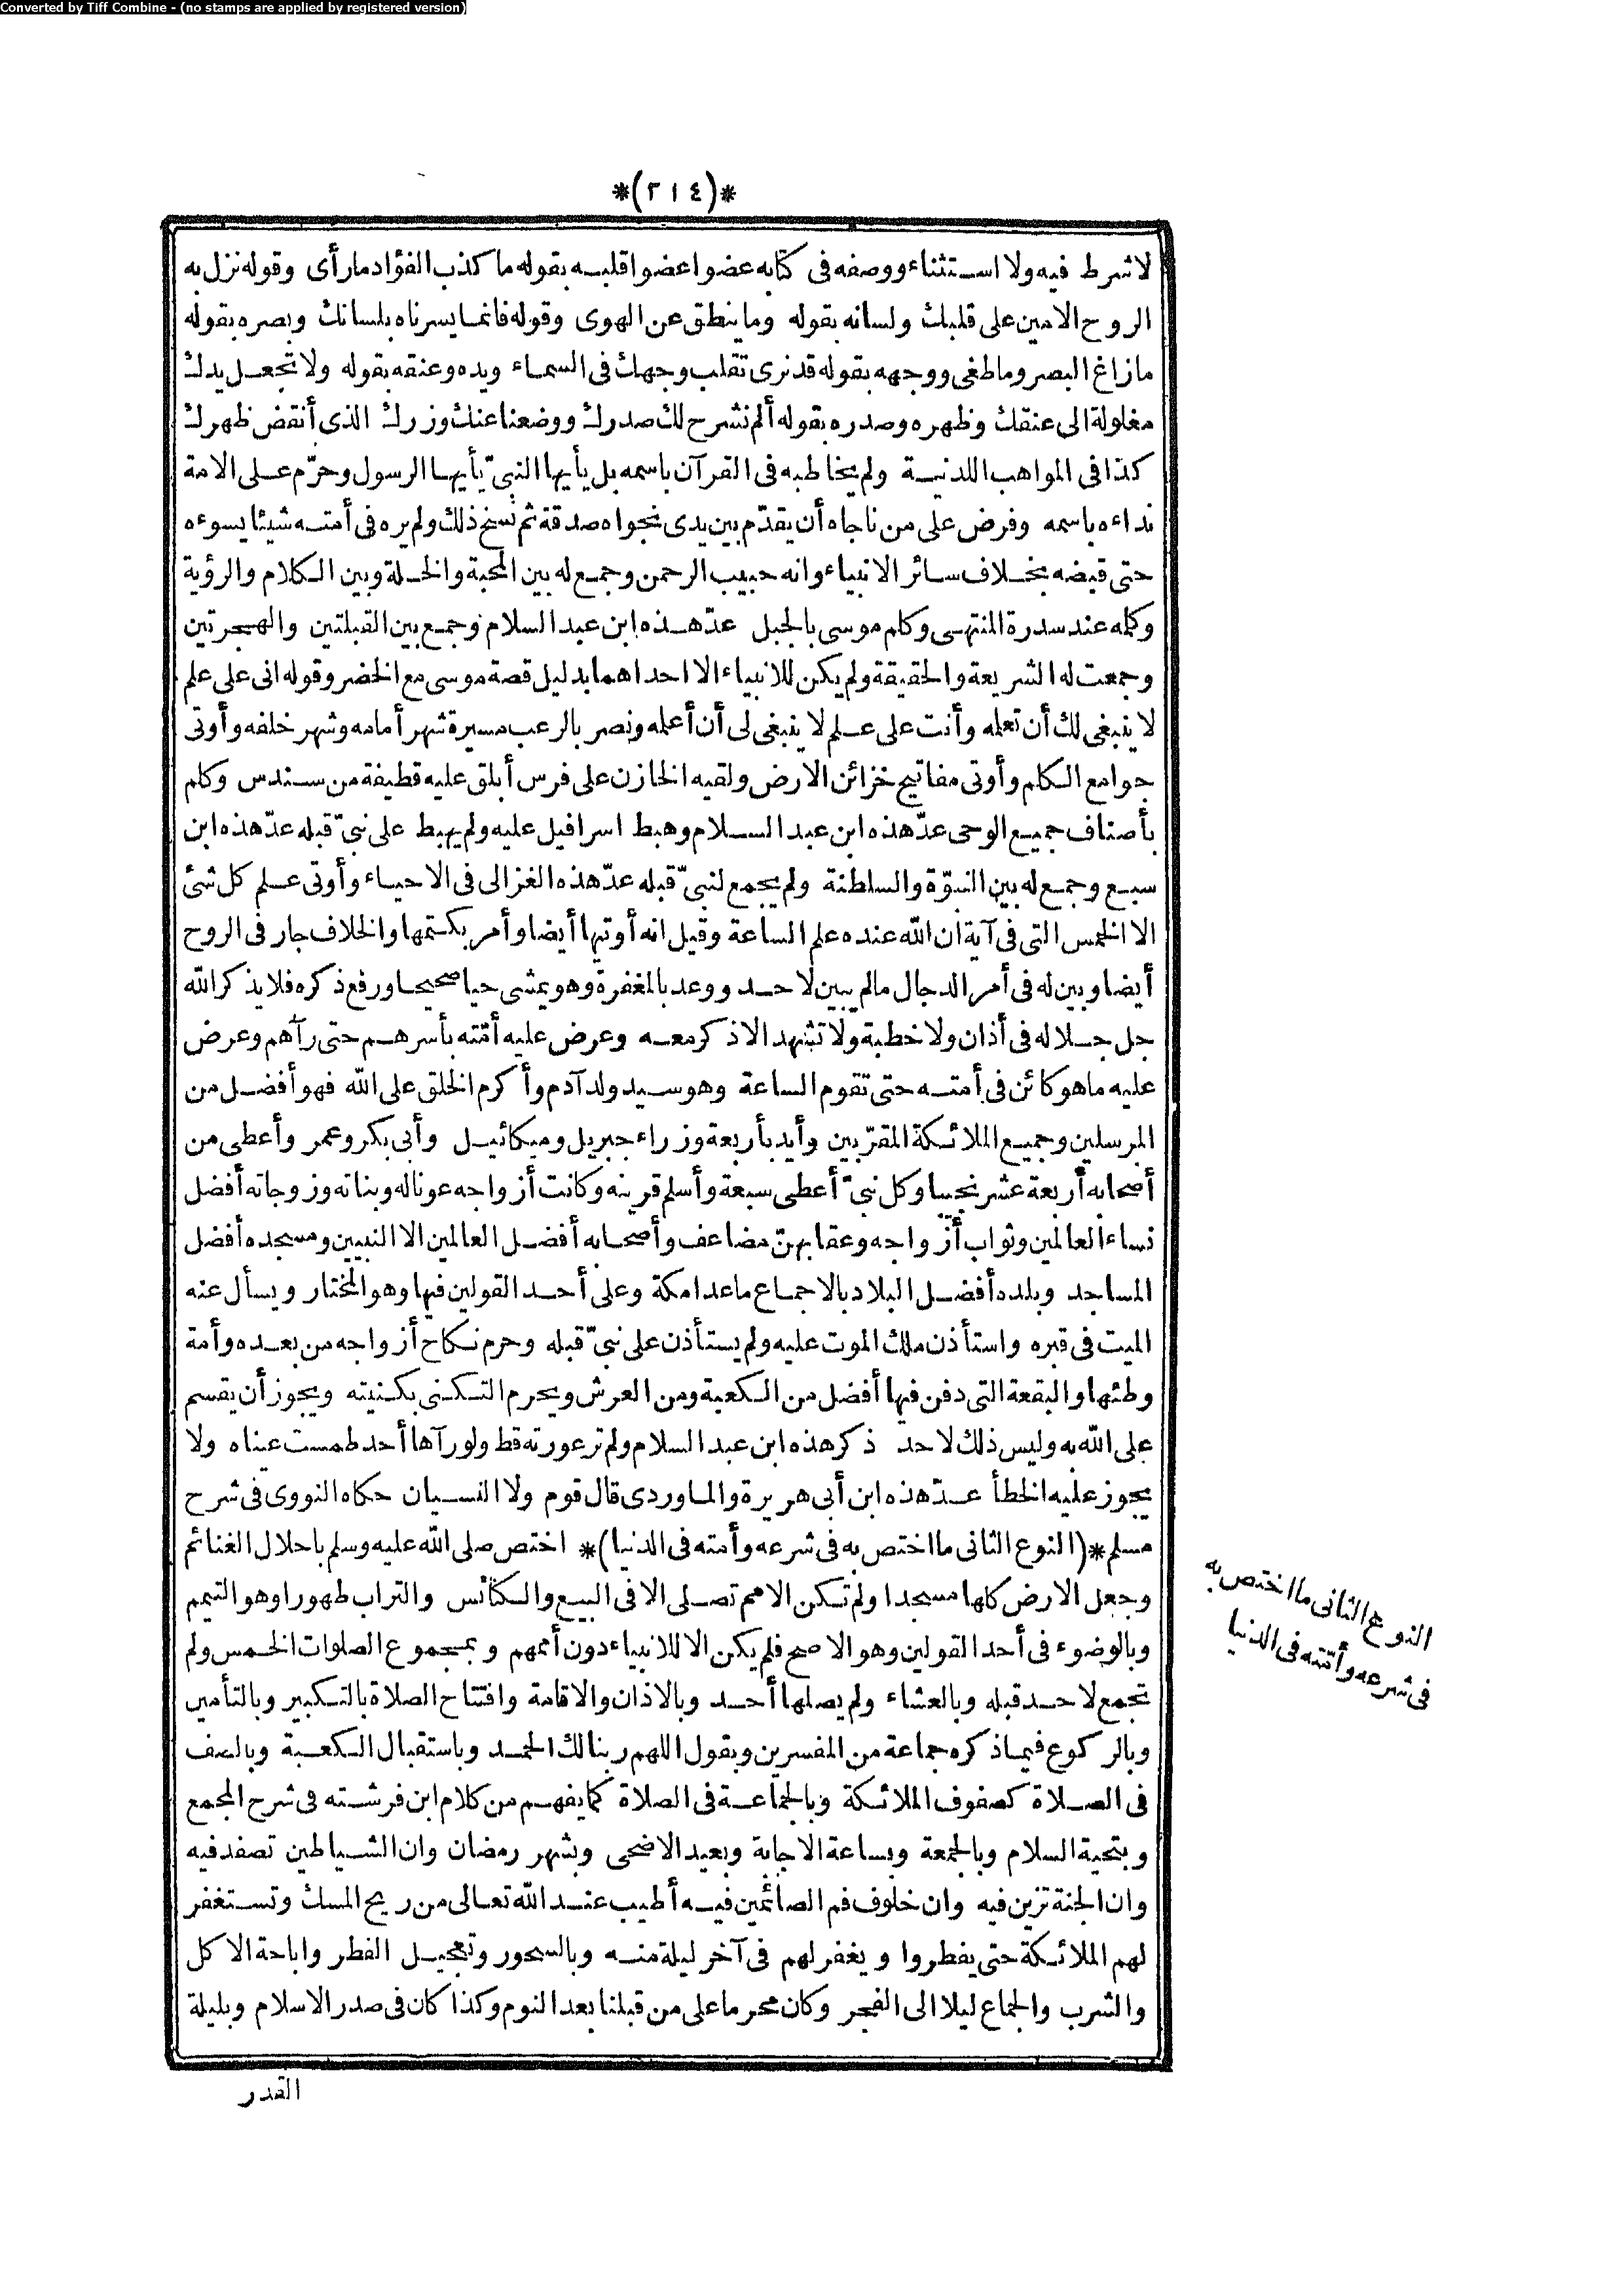 Converted by Tiff Combine - (no stamps are applied by registered version)
*(٢١٤)*
لا شرط فيه ولا استثناء ووصفه فى كتابه عضوا عضوا قلبه بقوله ما كذب الفؤاد ما رأى وقوله نزل به
الروح الامين على قلبك ولسانه بقوله وما ينطق عن الهوى وقوله فانما يسرناه بلسانك وبصره بقوله
ما زاغ البصر وما طغى ووجهه بقوله قد نرى تقلب وجهك فى السماء ويده وعنقه بقوله ولا تجعل يدك
مغلولة الى عنقك وظهره وصدره بقوله ألم نشرح لك صدرك ووضعنا عنك وزرك الذى أنقض ظهرك
كذا فى المواهب اللدنية ولم يخاطبه فى القرآن باسمه بل يأيها النبىّ يأيها الرسول وحرّم على الامة
نداءه باسمه وفرض على من ناجاه أن يقدّم بين يدى نجواه صدقة ثم نسخ ذلك ولم يره فى أمته شيئا يسوءه
حتى قبضه بخلاف سائر الانبياء وانه حبيب الرحمن وجمع له بين المحبة والخلة وبين الكلام والرؤية
وكلمه عند سدرة المنتهى وكلم موسى بالجبل عدّ هذه ابن عبد السلام وجمع بين القبلتين والهجرتين
وجمعت له الشريعة والحقيقة ولم يكن للانبياء الا احداهما بدليل قصة موسى مع الخضر وقوله انى على علم
لا ينبغى لك أن تعلمه وأنت على علم لا ينبغى لى أن أعلمه ونصر بالرعب مسيرة شهر أمامه وشهر خلفه وأوتى
جوامع الكلم وأوتى مفاتيح خزائن الارض ولقيه الخازن على فرس أبلق عليه قطيفة من سندس وكلم
بأصناف جميع الوحى عدّ هذه ابن عبد السلام وهبط اسرافيل عليه ولم يهبط على نبىّ قبله عدّ هذه ابن
سبع وجمع له بين النبوّة والسلطنة ولم يجمع لنبىّ قبله عدّ هذه الغزالى فى الاحياء وأوتى علم كل شئ
الا الخمس التى فى آية ان الله عنده علم الساعة وقيل انه أوتيها أيضا وأمر بكتمها والخلاف جار فى الروح
أيضا وبين له فى أمر الدجال مالم يبين لاحد ووعد بالمغفرة وهو يمشى حيا صحيحا ورفع ذكره فلا يذكر الله
جل جلاله فى أذان ولا خطبة ولا تشهد الا ذكر معه وعرض عليه أمّته بأسرهم حتى رآهم وعرض
عليه ما هو كائن فى أمته حتى تقوم الساعة وهو سيد ولد آدم وأكرم الخلق على الله فهو أفضل من
المرسلين وجميع الملائكة المقرّبين وأيد بأربعة وزراء جبريل وميكائيل وأبى بكر وعمر وأعطى من
أصحابه أربعة عشر نجيبا وكل نبىّ أعطى سبعة وأسلم قرينه وكانت أزواجه عونا له وبناته وزوجاته أفضل
نساء العالمين وثواب أزواجه وعقابهنّ مضاعف وأصحابه أفضل العالمين الا النبيين ومسجده أفضل
المساجد وبلده أفضل البلاد بالاجماع ماعدا مكة وعلى أحد القولين فيها وهو المختار ويسأل عنه
الميت فى قبره واستأذن ملك الموت عليه ولم يستأذن على نبىّ قبله وحرم نكاح أزواجه من بعده وأمة
وطئها والبقعة التى دفن فيها أفضل من الكعبة ومن العرش ويحرم التكنى بكنيته ويجوز أن يقسم
على الله به وليس ذلك لاحد ذكر هذه ابن عبد السلام ولم تر عورته قط ولو رآها أحد طمست عيناه ولا
يجوز عليه الخطأ عدّ هذه ابن أبى هريرة والماوردى قال قوم ولا النسيان حكاه النووى فى شرح
مسلم *(النوع الثانى ما اختص به فى شرعه وأمته فى الدنيا)* اختص صلى الله عليه وسلم باحلال الغنائم
وجعل الارض كلها مسجدا ولم تكن الامم تصلى الا فى البيع والكنائس والتراب طهورا وهو التيمم
وبالوضوء فى أحد القولين وهو الاصح فلم يكن الا للانبياء دون أممهم وبمجموع الصلوات الخمس ولم
تجمع لاحد قبله وبالعشاء ولم يصلها أحد وبالاذان والاقامة وافتتاح الصلاة بالتكبير وبالتأمين
وبالركوع فيما ذكره جماعة من المفسرين وبقول اللهم ربنا لك الحمد وباستقبال الكعبة وبالصف
فى الصلاة كصفوف الملائكة وبالجماعة فى الصلاة كما يفهم من كلام ابن فرشته فى شرح المجمع
وبتحية السلام وبالجمعة وبساعة الاجابة وبعيد الاضحى وبشهر رمضان وان الشياطين تصفد فيه
وان الجنة تزين فيه وان خلوف فم الصائمين فيه أطيب عند الله تعالى من ريح المسك وتستغفر
لهم الملائكة حتى يفطروا ويغفر لهم فى آخر ليلة منه وبالسحور وتعجيل الفطر واباحة الاكل
والشرب والجماع ليلا الى الفجر وكان محرما على من قبلنا بعد النوم وكذا كان فى صدر الاسلام وبليلة
القدر
النوع الثانى ما اختص به
فى شرعه وأمّته فى الدنيا